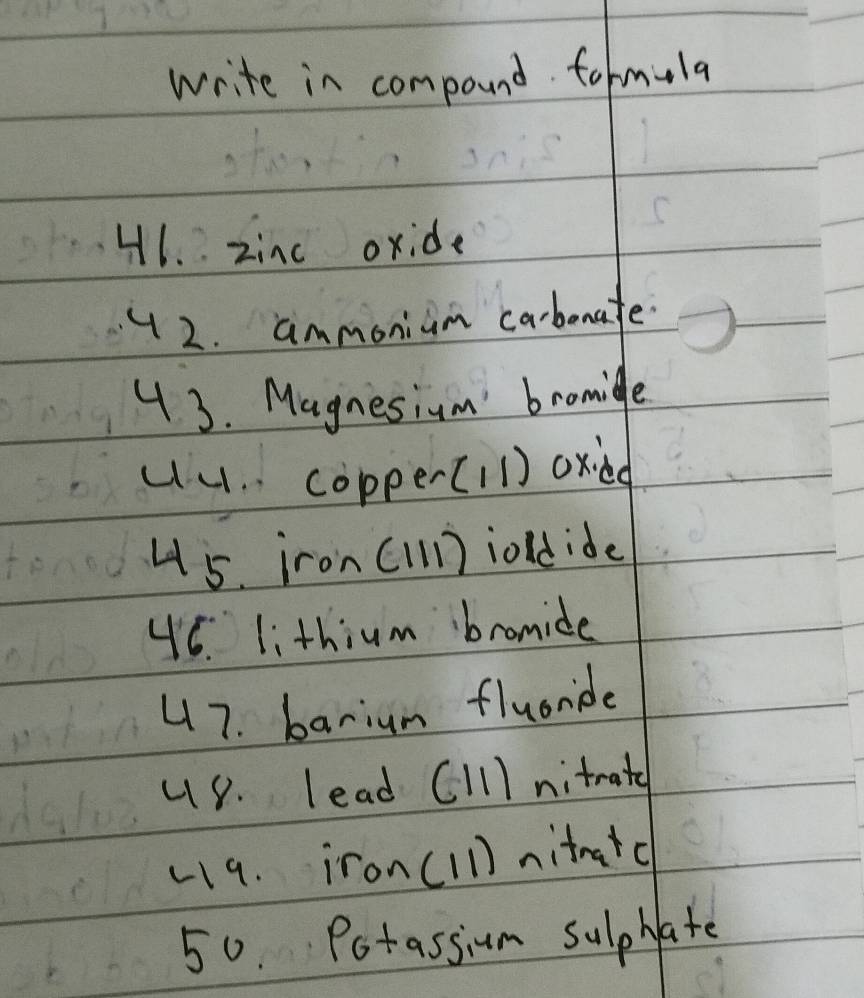 Write in compound formula
41. zinc oxide
42. ammonium carbonate
43. Magnesium bromide
44. copper(11) oxide
45. iron (111) ioldide
46. lithium bromide
47. barium fluoride
48. lead (11) nitrate
49. iron(11) nitrate
50. Potassium sulphate